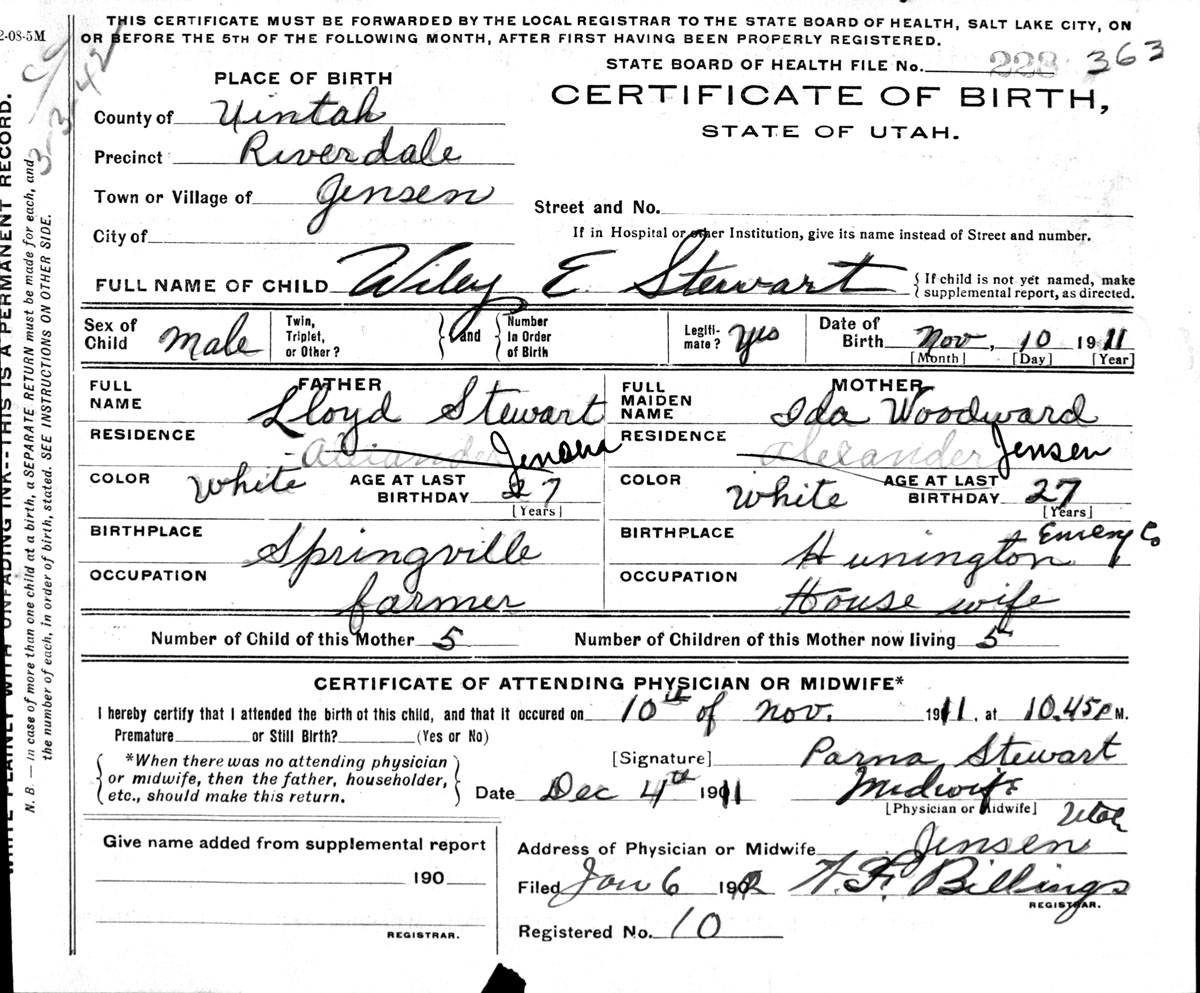 THIS CERTIFICATE MUST BE FORWARDED BY THE LOCAL REGISTRAR TO THE STATE BOARD OF HEALTH, SALT LAKE CITY, ON
OR BEFORE THE 5TH OF THE FOLLOWING MONTH, AFTER FIRST HAVING BEEN PROPERLY REGISTERED.
2-08-5M
3-3-42
STATE BOARD OF HEALTH FILE No. 228 363
PLACE OF BIRTH
CERTIFICATE OF BIRTH,
STATE OF UTAH.
County of Uintah
Precinct Riverdale
Town or Village of Jensen
Street and No.
City of
If in Hospital or other Institution, give its name instead of Street and number.
FULL NAME OF CHILD Wiley E Stewart { If child is not yet named, make
supplemental report, as directed.
Sex of Child Male Twin, Triplet, or Other? } and { Number In Order of Birth Legiti-mate? Yes Date of Birth Nov, 10 1911
[Month] [Day] [Year]
FATHER MOTHER
FULL NAME Lloyd Stewart FULL MAIDEN NAME Ida Woodward
RESIDENCE Jensen RESIDENCE Alexander Jensen
COLOR White AGE AT LAST BIRTHDAY 27 COLOR White AGE AT LAST BIRTHDAY 27
[Years] [Years]
BIRTHPLACE Springville BIRTHPLACE Hunington Emery Co
OCCUPATION farmer OCCUPATION House wife
Number of Child of this Mother 5 Number of Children of this Mother now living 5
CERTIFICATE OF ATTENDING PHYSICIAN OR MIDWIFE*
I hereby certify that I attended the birth ot this child, and that it occured on 10th of Nov. 1911, at 10.45 P M.
Premature or Still Birth? (Yes or No)
*When there was no attending physician
or midwife, then the father, householder,
etc., should make this return.
[Signature] Parna Stewart
Date Dec 4th 1911 Midwife
[Physician or Midwife]
Utah
Address of Physician or Midwife Jensen
Give name added from supplemental report
190
REGISTRAR.
Filed Jan 6 1902 H. F. Billings
REGISTRAR.
Registered No. 10
WRITE PLAINLY WITH UNFADING INK--THIS IS A PERMANENT RECORD.
N. B. — In case of more than one child at a birth, a SEPARATE RETURN must be made for each, and
the number of each, in order of birth, stated. SEE INSTRUCTIONS ON OTHER SIDE.